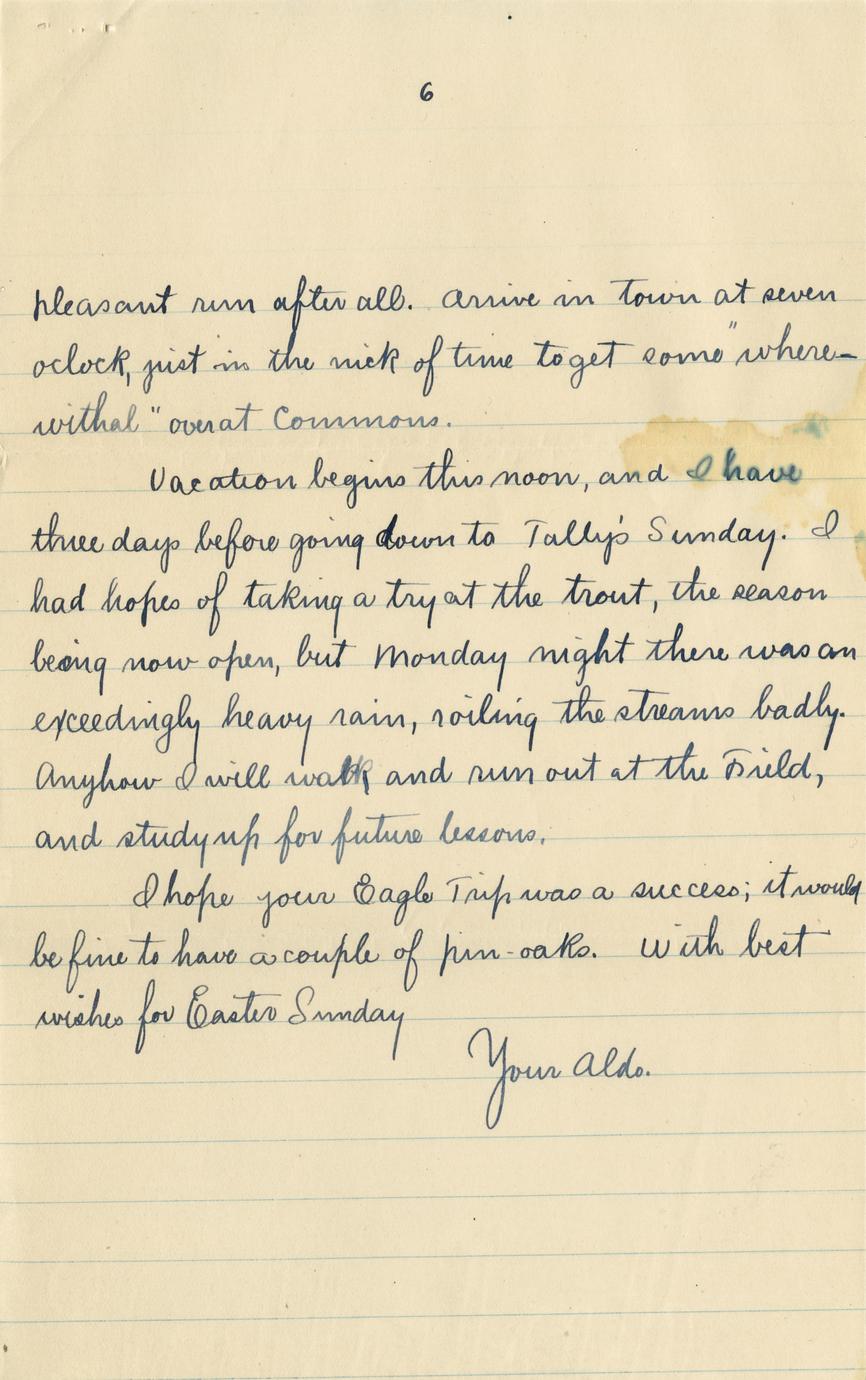 6
pleasant run after all. Arrive in town at seven
oclock, just in the nick of time to get some "where-
withal" over at Commons.
Vacation begins this noon, and I have
three days before going down to Tally's Sunday. I
had hopes of taking a try at the trout, the season
being now open, but Monday night there was an
exceedingly heavy rain, roiling the streams badly.
Anyhow I will walk and run out at the Field,
and study up for future lessons.
I hope your Eagle Trip was a success; it would
be fine to have a couple of pin-oaks. With best
wishes for Easter Sunday
Your Aldo.